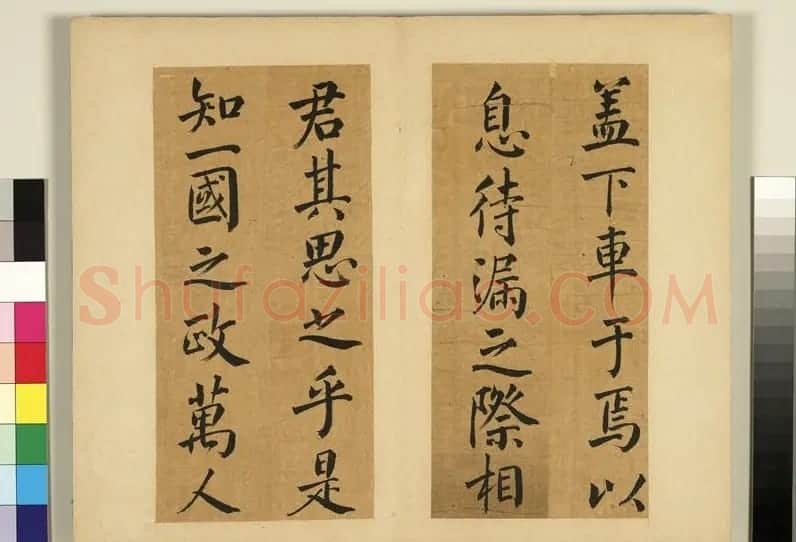 盖下車于焉以
息待漏之際相
君其思之乎是
知一國之政萬人
Shufaziliao.COM